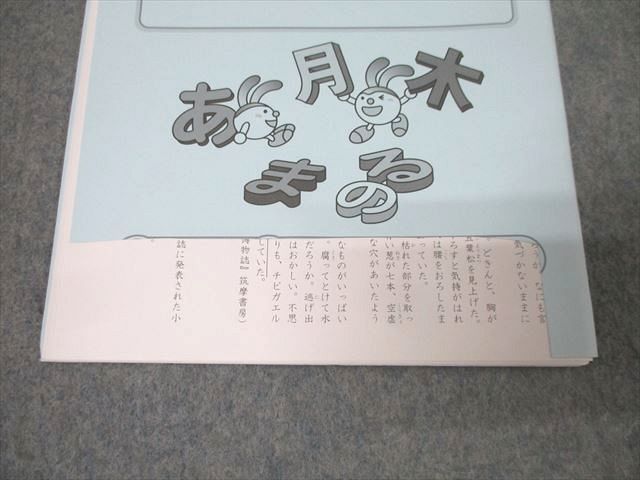 あ月木
まのる
ろうか。なにも言
気づかないままに
どさんと、胸が
五葉松を見上げた。
ろすと気持がはれ
は腰をおろしたま
っていた。
枯れた部分を取っ
い葱が七本、空虚
な穴があいたよう
なものがいっぱい
。腐ってとけて水
だろうか。逃げ出
はおかしい。不思
りも、チビガエル
していた。
博物誌』筑摩書房)
誌に発表された小
。